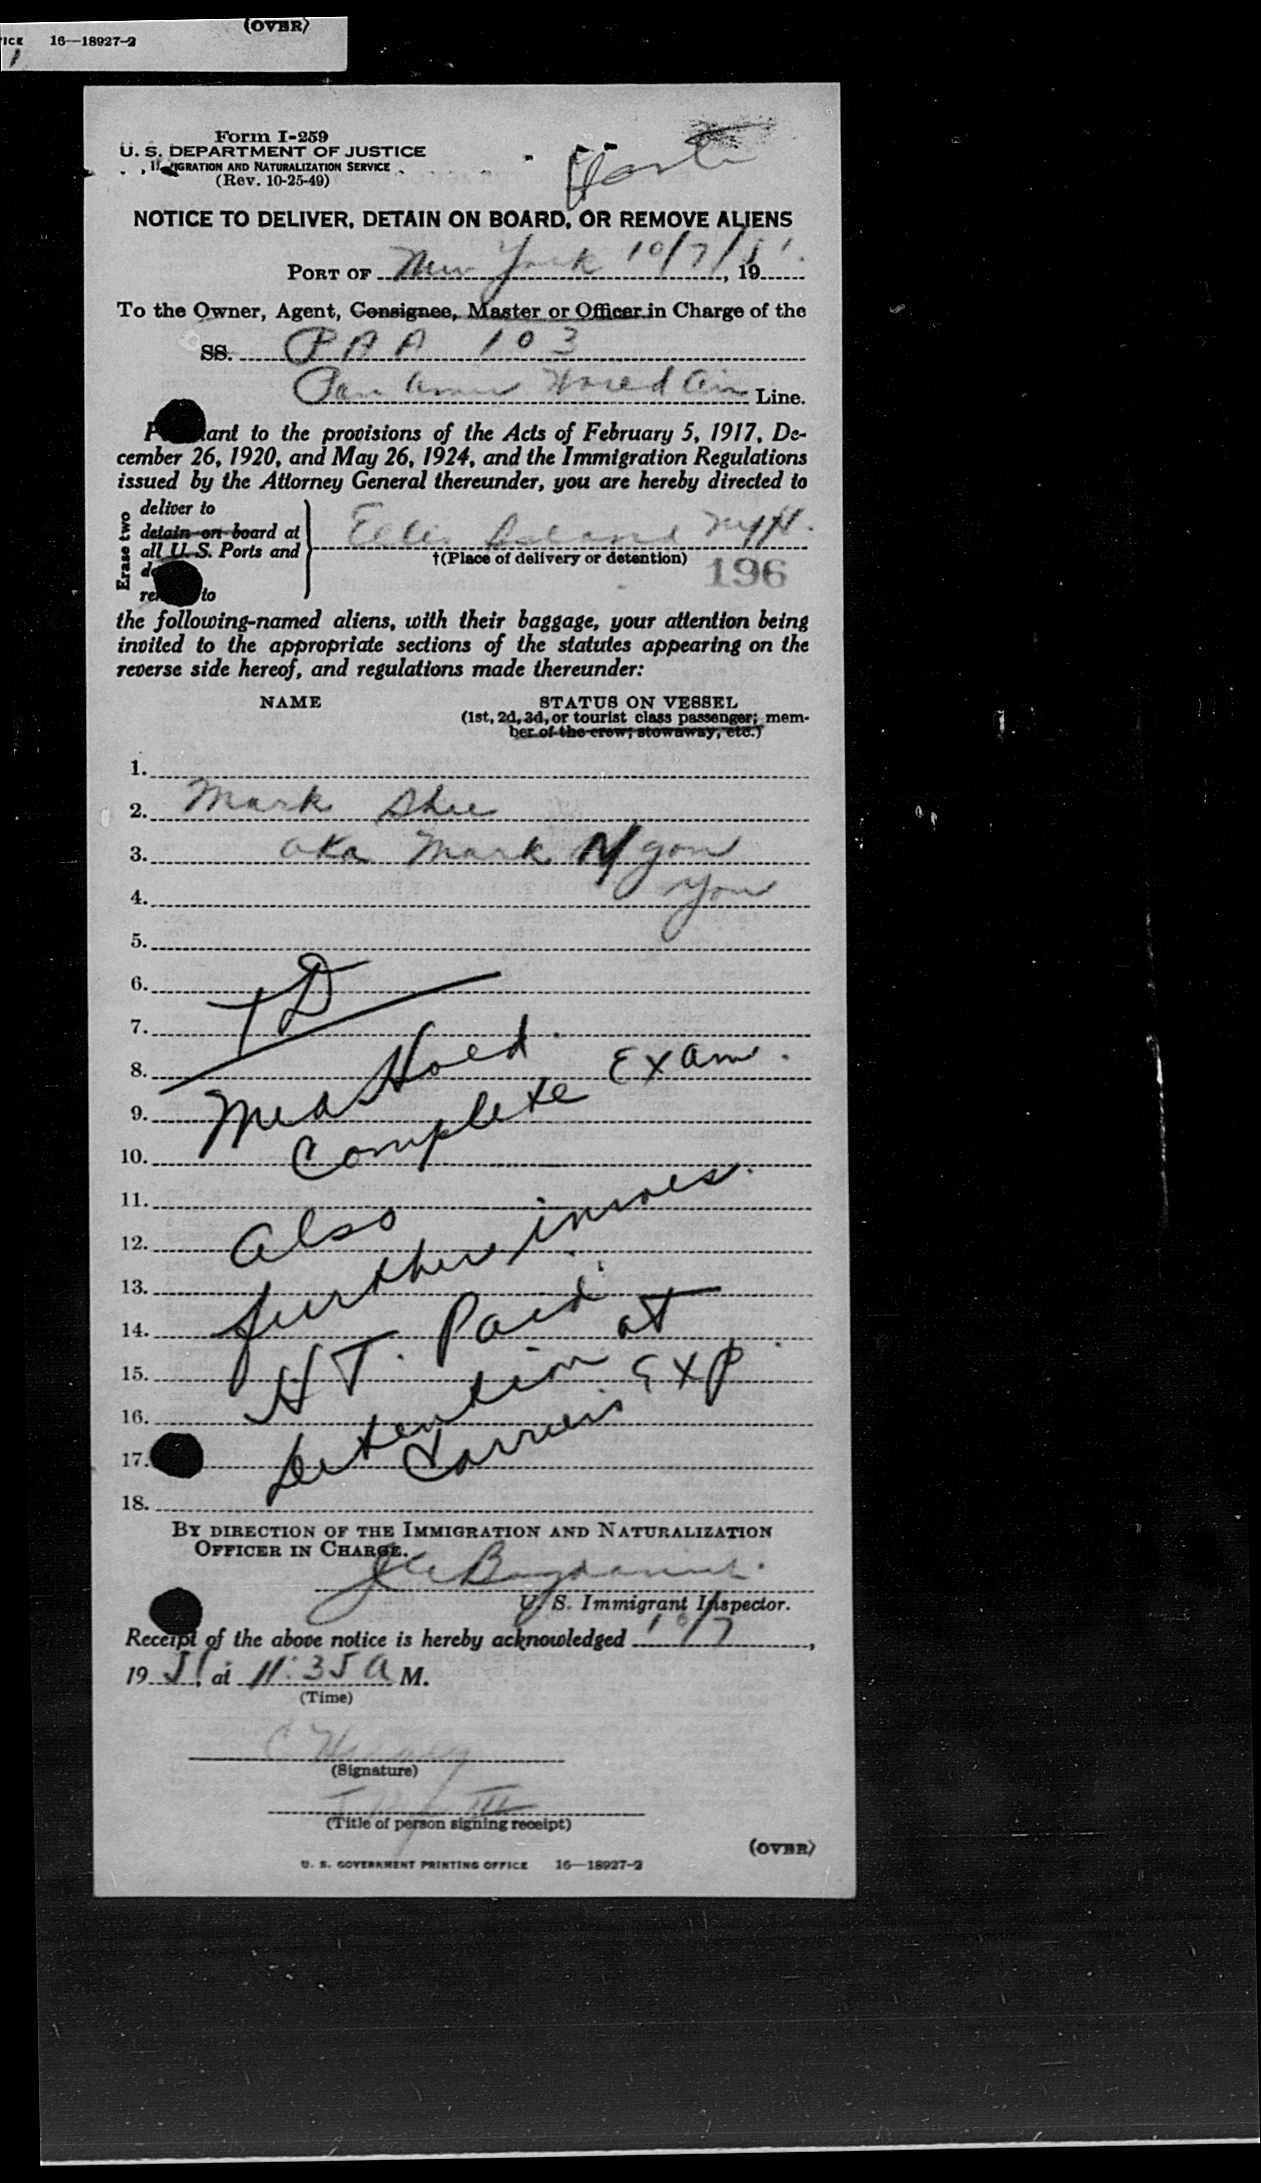 (OVER)
ICE 16—18927-2
Form I-259
U. S. DEPARTMENT OF JUSTICE
IMMIGRATION AND NATURALIZATION SERVICE
(Rev. 10-25-49)
NOTICE TO DELIVER, DETAIN ON BOARD, OR REMOVE ALIENS
PORT OF New York 10/7/51, 19
To the Owner, Agent, Consignee, Master or Officer in Charge of the
SS. PAA 103
Pan Amer World Air Line.
Pursuant to the provisions of the Acts of February 5, 1917, De-
cember 26, 1920, and May 26, 1924, and the Immigration Regulations
issued by the Attorney General thereunder, you are hereby directed to
Erase two
deliver to
detain on board at
all U. S. Ports and
to
Ellis Island NYH.
†(Place of delivery or detention)
196
the following-named aliens, with their baggage, your attention being
invited to the appropriate sections of the statutes appearing on the
reverse side hereof, and regulations made thereunder:
NAME
STATUS ON VESSEL
(1st, 2d, 3d, or tourist class passenger; mem-
ber of the crew; stowaway, etc.)
1.
2. Mark Shee
3. aka Mark Ngon
4. You
5.
6.
7. TD
8.
9. Med Hold.
10. Complete Exam.
11.
12. Also
13. further inves.
14.
15. HT. Paid
16. Detention at
17. Carriers Exp.
18.
BY DIRECTION OF THE IMMIGRATION AND NATURALIZATION
OFFICER IN CHARGE.
U. S. Immigrant Inspector.
Receipt of the above notice is hereby acknowledged 10/7,
1951, at 11:35 A M.
(Time)
(Signature)
(Title of person signing receipt)
(OVER)
U. S. GOVERNMENT PRINTING OFFICE 16—18927-2